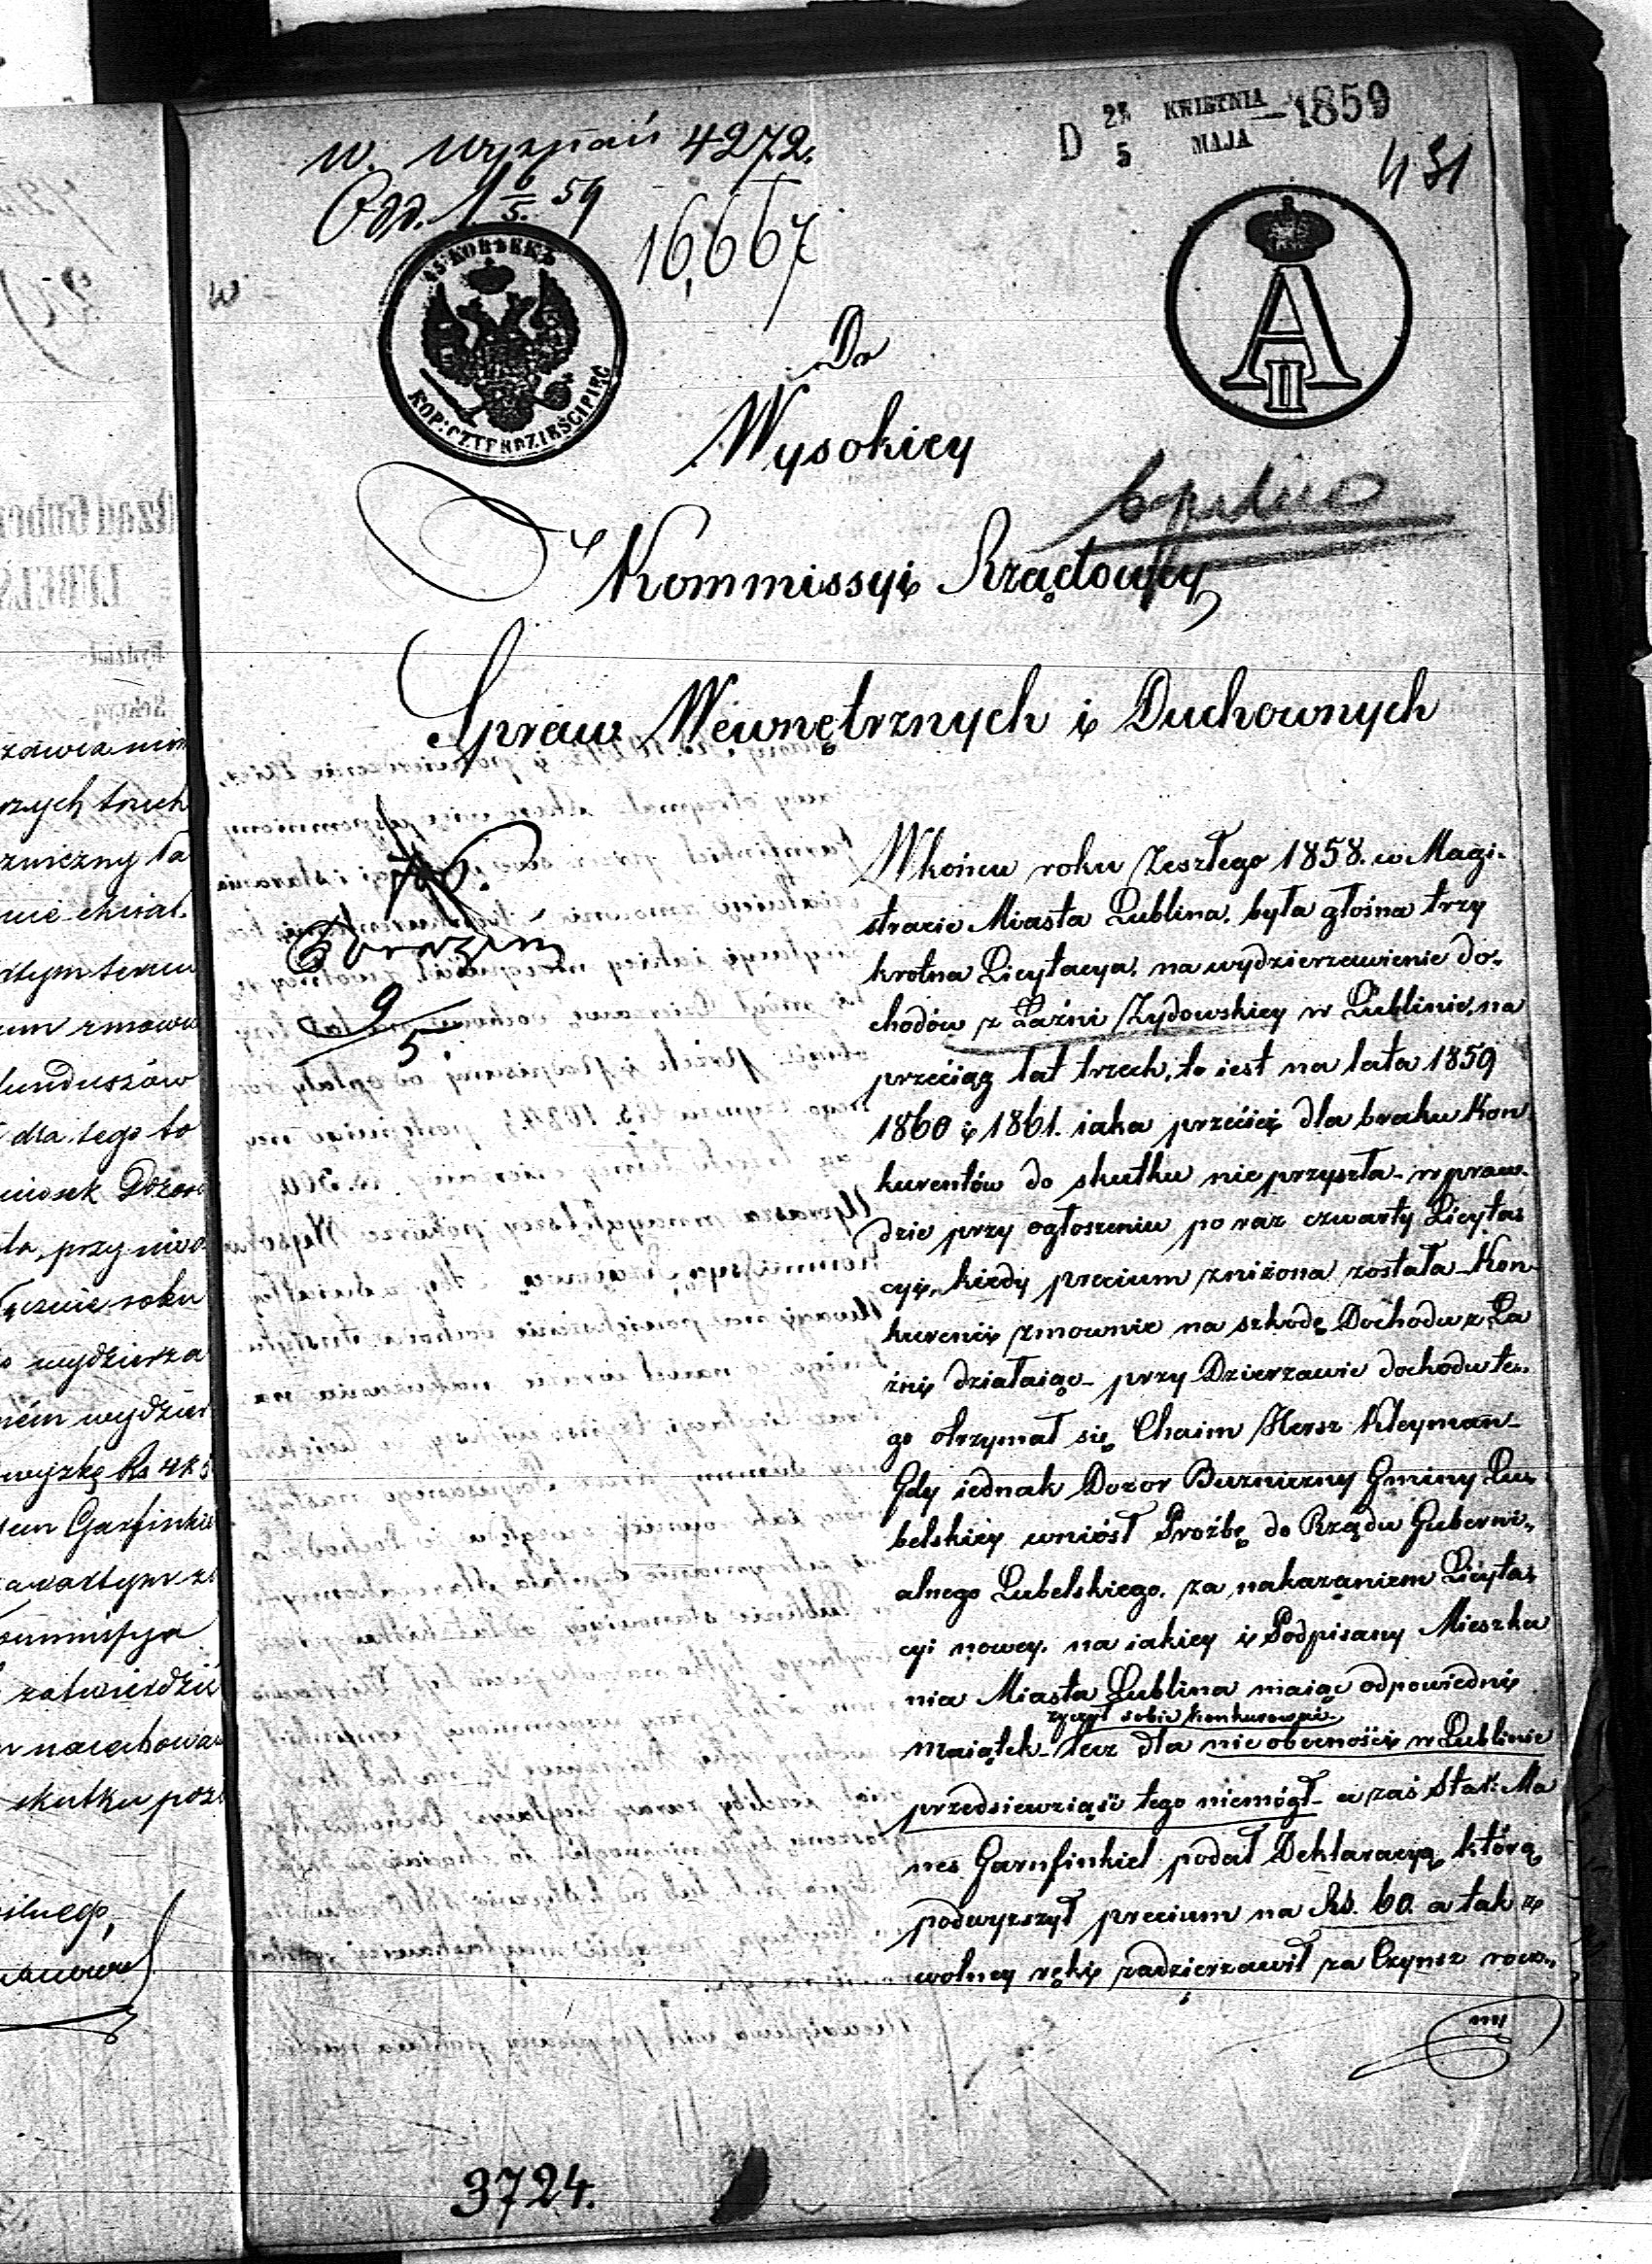 W. Wyznań 4272.
Odd. 1 6/5. 59
D 23 KWIETNIA
5 MAJA 1859
431
16,667
45 KOPѢEKЪ
KOP: CZTERDZIEŚCI PIĘĆ
A II
Do
Wysokiey
Kommissyi Rządowey
Spraw Wewnętrznych i Duchownych
9/5
W końcu roku Zeszłego 1858. w Magi-
stracie Miasta Lublina, była głośna trzy
krotna Licytacya, na wydzierżawienie do-
chodów z Łaźni Żydowskiey w Lublinie, na
przeciąg lat trzech, to iest na lata 1859
1860 i 1861. iaka przecież dla braku Kon
kurentów do skutku nie przyszła - w praw-
dzie przy ogłoszeniu po raz czwarty Licyta-
cyi, kiedy precium zniżona została - Kon-
kurenci zmownie na szkodę Dochodu z Ła
źni działaiąc - przy Dzierzawie dochodu te-
go otrzymał się Chaim Hersz Kleyman -
Gdy iednak Dozor Bużniczny Gminy Lu-
belskiey wniósł Proźbę do Rządu Guberni-
alnego Lubelskiego, za nakazaniem Licyta-
cyi nowey, na iakiey i Podpisany Mieszka
niec Miasta Lublina maiąc odpowiedni
życzył sobie konkurować
maiątek - lecz dla nieobecności w Lublinie
przedsiewziąść tego niemógł - a zaś Star: Ma
nes Garnfinkiel podał Deklaracyą, którą
podwyższył precium na Rs. 60. a tak z
wolney ręki zadzierżawił za Czynsz rocz-
3724.
zawca
rzych trzech
dla tego to
wniosek Dozor
ta, przy
roku
wydzierza
wydzier
Rs
Garfinkiel
zawartym
Kommissya
zatwierdzić
skutku